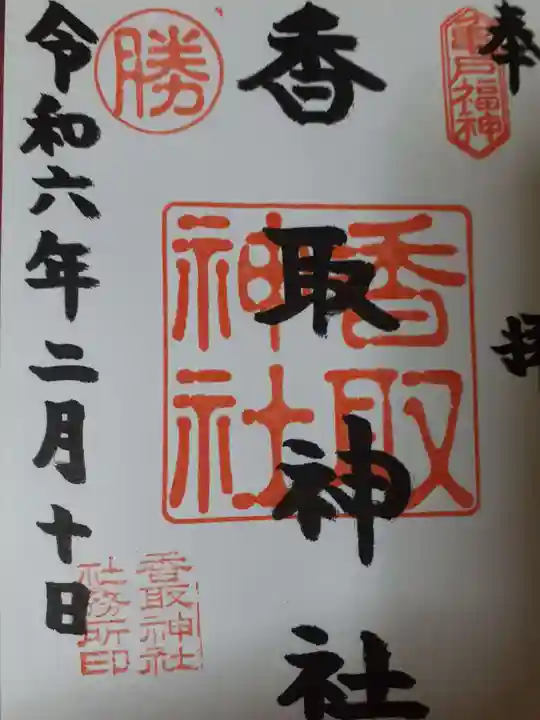 奉拝
亀戸福神
香取神社
香取神社
勝
令和六年二月十日
香取神社
社務所印